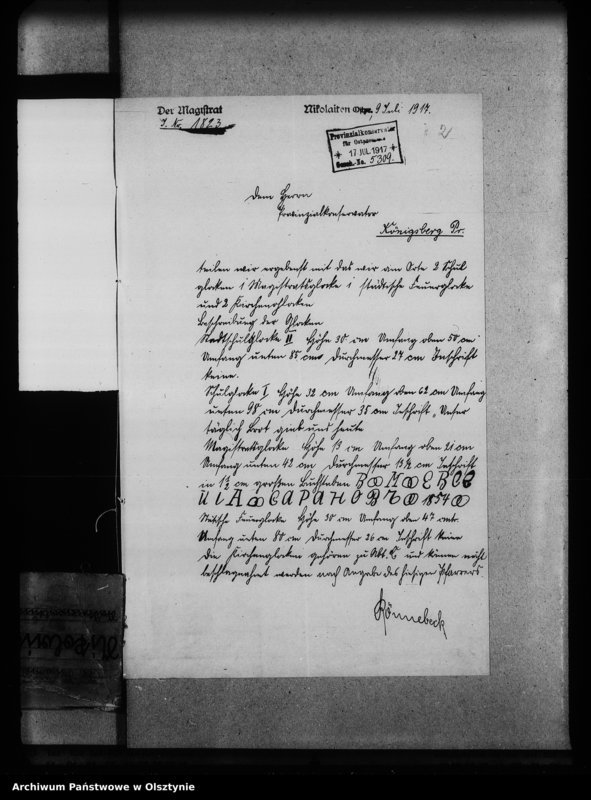 Der Magistrat
J. No. 1823
Nikolaiken Ostpr., 9 Juli 1917.
2
Provinzialkonservator
für Ostpreussen
17 JUL 1917
Gesch.-No. 5309.
Dem Herrn
Provinzialkonservator
Königsberg Pr.
teilen wir ergebenst mit das wir am Orte 2 Schul
glocken 1 Magistratsglocke 1 städtische Feuerglocke
und 2 Kirchenglocken
Beschreibung der Glocken
Stadtschulglocke II Höhe 30 cm Umfang oben 50 cm
Umfang unten 85 cm Durchmesser 27 cm Inschrift
keine.
Schulglocke I Höhe 32 cm Umfang oben 62 cm Umfang
unten 98 cm Durchmesser 35 cm Inschrift „Unser
täglich Brot gieb uns heute
Magistratsglocke Höhe 13 cm Umfang oben 21 cm
Umfang unten 42 cm Durchmesser 13½ cm Inschrift
in 1½ cm grossen Buchstaben
САРАНОВЪ 1854
Feuerglocke Höhe 30 cm Umfang oben 47 cmtr.
Umfang unten 80 cm Durchmesser 26 cm Inschrift keine
Die Kirchenglocken gehören zu Abt. und können nicht
beschlagnahmt werden nach Angabe des hiesigen Pfarrers
Rönnebeck
Archiwum Państwowe w Olsztynie